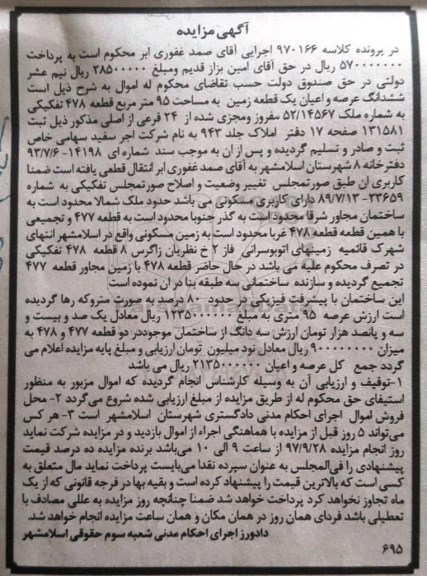 آگهی مزایده
در پرونده کلاسه ۹۷۰۱۶۶ اجرایی آقای صمد غفوری ابر محکوم است به پرداخت
۵۷۰۰۰۰۰۰۰ ریال در حق آقای امین بزاز قدیم ومبلغ ۲۸۵۰۰۰۰۰ ریال نیم عشر
دولتی در حق صندوق دولت حسب تقاضای محکوم له اموال به شرح ذیل است
ششدانگ عرصه و اعیان یک قطعه زمین به مساحت ۹۵ متر مربع قطعه ۴۷۸ تفکیکی
به شماره ملک ۵۲/۱۴۵۶۷ مفروز ومجزی شده از ۲۴ فرعی از اصلی مذکور ذیل ثبت
۱۳۱۵۸۱ صفحه ۱۷ دفتر املاک جلد ۹۴۳ به نام شرکت اجر سفید سهامی خاص
ثبت و صادر و تسلیم گردیده و پس از ان به موجب سند شماره ای ۱۴۱۹۸- ۹۳/۷/۶
دفترخانه ۸ شهرستان اسلامشهر به آقای صمد غفوری ابر انتقال قطعی یافته است ضمنا
کاربری ان طبق صورتمجلس تغییر وضعیت و اصلاح صورتمجلس تفکیکی به شماره
۳۳۶۵۹-۸۹/۷/۱۳ دارای کاربری مسکونی می باشد حدود ملک شمالا محدود است به
ساختمان مجاور شرقا محدود است به گذر جنوبا محدود است به قطعه ۴۷۷ و تجمیعی
با همین قطعه قطعه ۴۷۸ غربا محدود است به زمین مسکونی واقع در اسلامشهر انتهای
شهرک قائمیه زمینهای اتوبوسرانی فاز ۲ خ نظریان زاگرس ۸ قطعه ۴۷۸ تفکیکی
در تصرف محکوم علیه می باشد در حال حاضر قطعه ۴۷۸ با زمین مجاور قطعه ۴۷۷
تجمیع گردیده و سازنده ساختمانی سه طبقه بنا در ان نموده است
این ساختمان با پیشرفت فیزیکی در حدود ۸۰ درصد به صورت متروکه رها گردیده
است ارزش عرصه ۹۵ متری به مبلغ ۱۲۳۵۰۰۰۰۰۰ ریال معادل یک صد و بیست و
سه و پانصد هزار تومان ارزش سه دانگ از ساختمان موجوددر دو قطعه ۴۷۷ و ۴۷۸ به
میزان ۹۰۰۰۰۰۰۰۰ ریال معادل نود میلیون تومان ارزیابی و مبلغ پایه مزایده اعلام می
گردد جمع کل عرصه و اعیان ۲۱۳۵۰۰۰۰۰۰ ریال می باشد
۱-توقیف و ارزیابی آن به وسیله کارشناس انجام گردیده که اموال مزبور به منظور
استیفای حق محکوم له از طریق مزایده از مبلغ ارزیابی شده شروع می‌گردد ۲- محل
فروش اموال اجرای احکام مدنی دادگستری شهرستان اسلامشهر است ۳- هر کس
می‌تواند ۵ روز قبل از مزایده با هماهنگی اجراء از اموال بازدید و در مزایده شرکت نماید
روز انجام مزایده ۹۷/۹/۲۸ از ساعت ۹ الی ۱۰ می‌باشد برنده مزایده ده درصد قیمت
پیشنهادی را فی‌المجلس به عنوان سپرده نقدا می‌بایست پرداخت نماید مال متعلق به
کسی است که بالاترین قیمت را پیشنهاد کرده است و بقیه بها در فرجه قانونی که از یک
ماه تجاوز نخواهد کرد پرداخت خواهد شد ضمنا چنانچه روز مزایده به عللی مصادف با
تعطیلی باشد فردای همان روز در همان مکان و همان ساعت مزایده انجام خواهد شد.
دادورز اجرای احکام مدنی شعبه سوم حقوقی اسلامشهر
۶۹۵